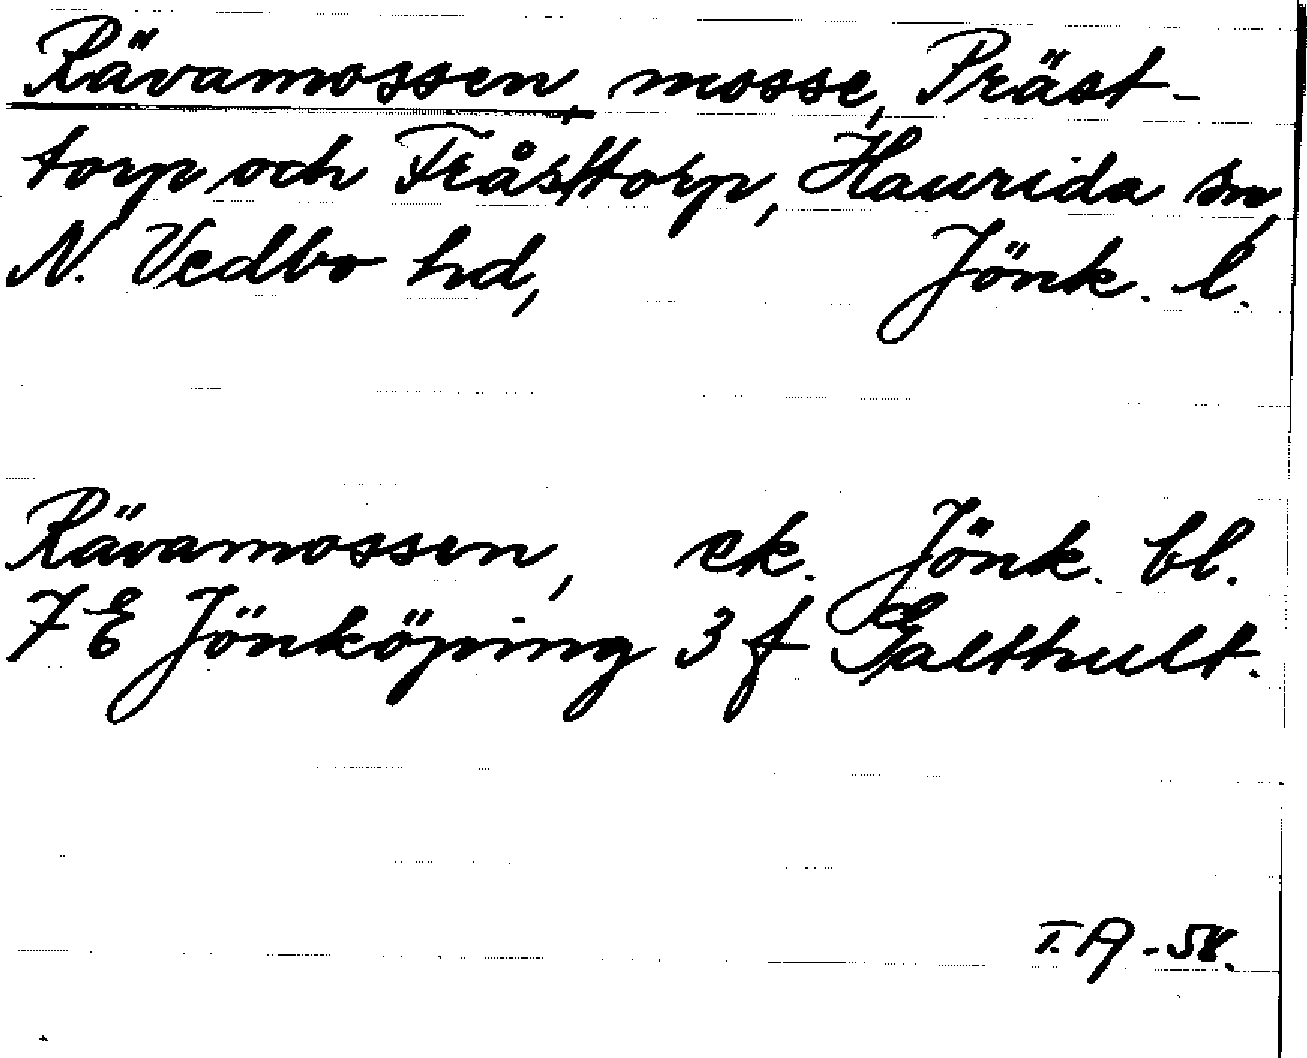 Rävamossen, mosse, Präst-
torp och Fråsttorp, Haurida sn,
N. Vedbo hd, Jönk. l.
Rävamossen, ek. Jönk. bl.
7 E Jönköping 3 f Galthult.
T.A -58.